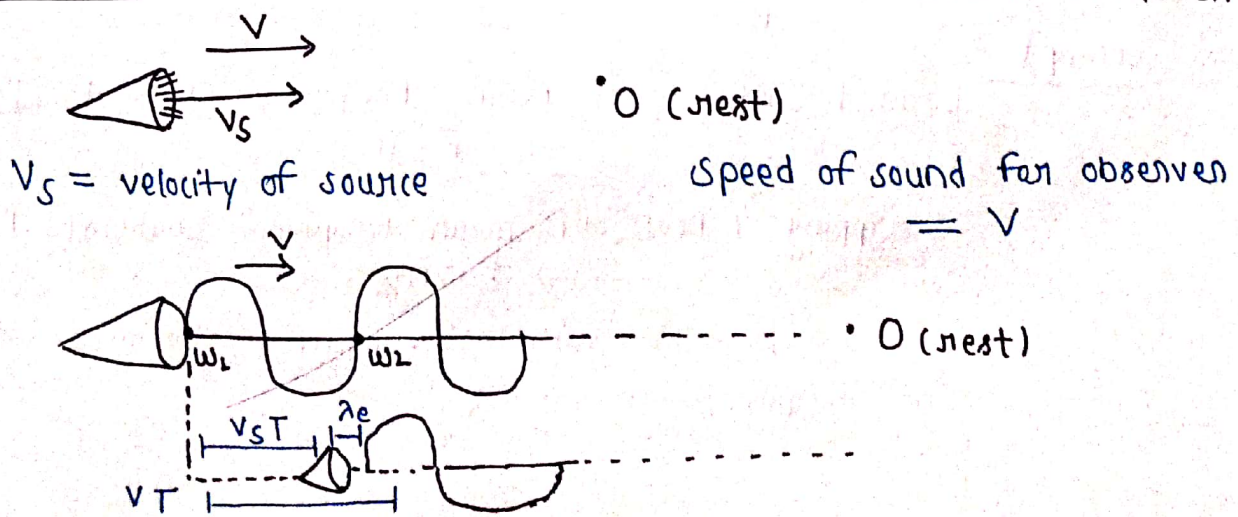 V
V_S
O (rest)
V_S = velocity of source
speed of sound for observer
= V
V
W_1
W_2
O (rest)
V_S T
λe
V T